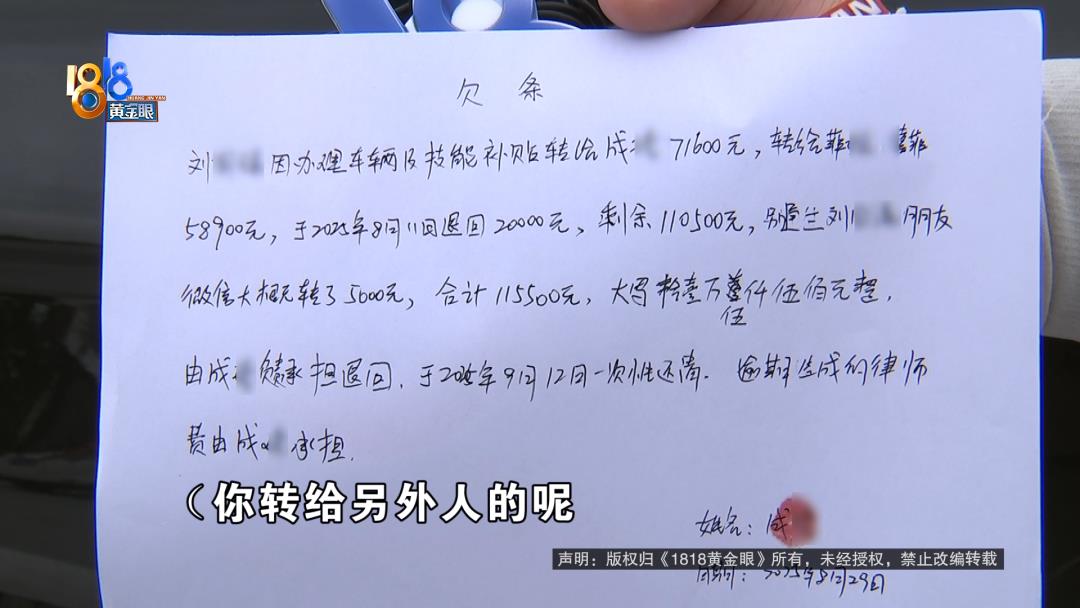 1818
HUANG JIN YAN
黄金眼
AN
欠条
刘 因办理车辆及技能补贴转给成 71600元，转给菲
58900元，于2025年8月11日退回20000元，剩余110500元，另医生刘 朋友
微信大概无转了5000元，合计115500元，大写拾壹万伍仟伍佰元整，
由成 负责承担退回，于2025年9月12日一次性还清. 逾期生成的律师
费由成 承担.
（你转给另外人的呢
姓名：成
声明：版权归《1818黄金眼》所有，未经授权，禁止改编转载
日期：2025年8月29日